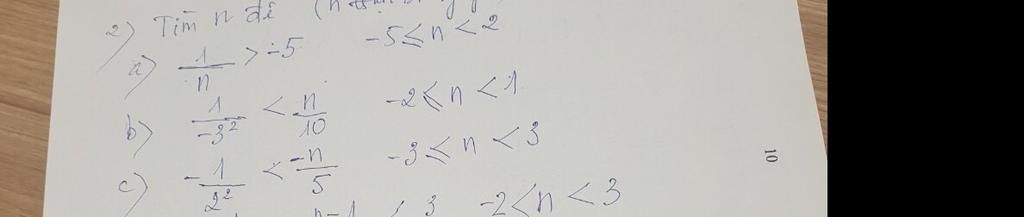 2) Tìm n để (n
a) 1/n > -5   -5 ≤ n < 2
b) 1/-3² < n/10   -2 ≤ n < 1
c) -1/2² < -n/5   -3 ≤ n < 3
n-1 < 3   -2 < n < 3
10